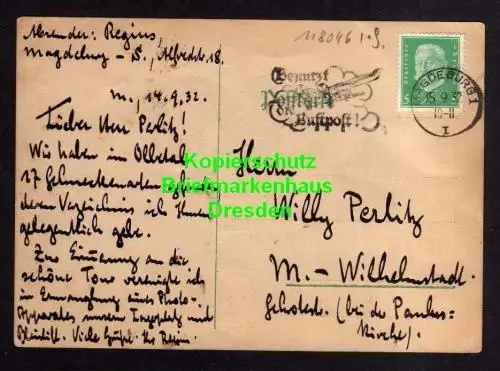 Absender: Regius,
Magdeburg - S., Alfredstr. 18.
118046
M., 14.9.32.
Lieber Herr Perlitz!
Wir haben im Ohretal
17 Schneckenarten
deren Verzeichnis ich Ihnen
gelegentlich gebe.
Zur Erinnerung an die
schöne Tour verewigte ich
in Ermangelung eines Photo-
Apparates unsern Lagerplatz mit
Bleistift. Viele Grüße! Ihr Regius.
Benutzt
Luftpost!
MAGDEBURG 1
15.9.32
Postkarte
Herrn
Willy Perlitz
M. - Wilhelmstadt
(bei der Paulus-
kirche).
Kopierschutz
Briefmarkenhaus
Dresden